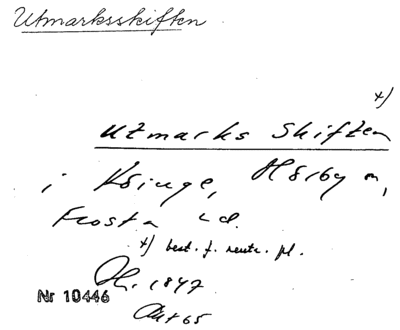 Utmarksskiften
x)
Utmarks Skiften
i Köinge, Hörby sn,
Frosta hd.
x) best. f. neutr. pl.
1847
Nr 10446
65